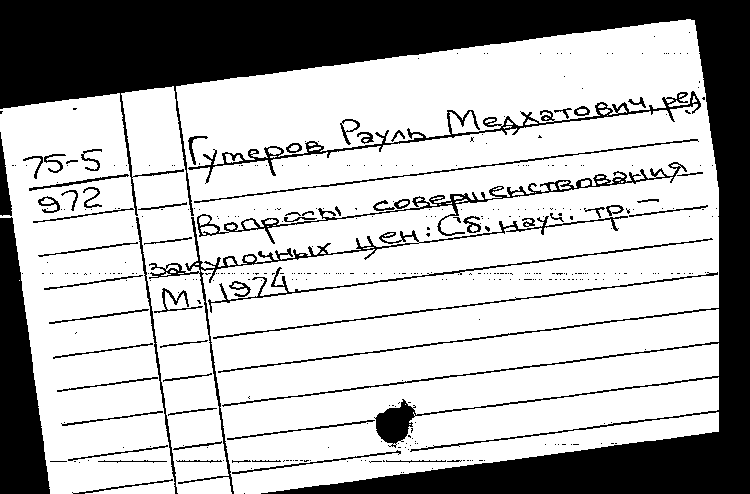 75-5
972
Гутеров, Рауль Медхатович, ред.
Вопросы совершенствования
закупочных цен: Сб. науч. тр. –
М., 1974.